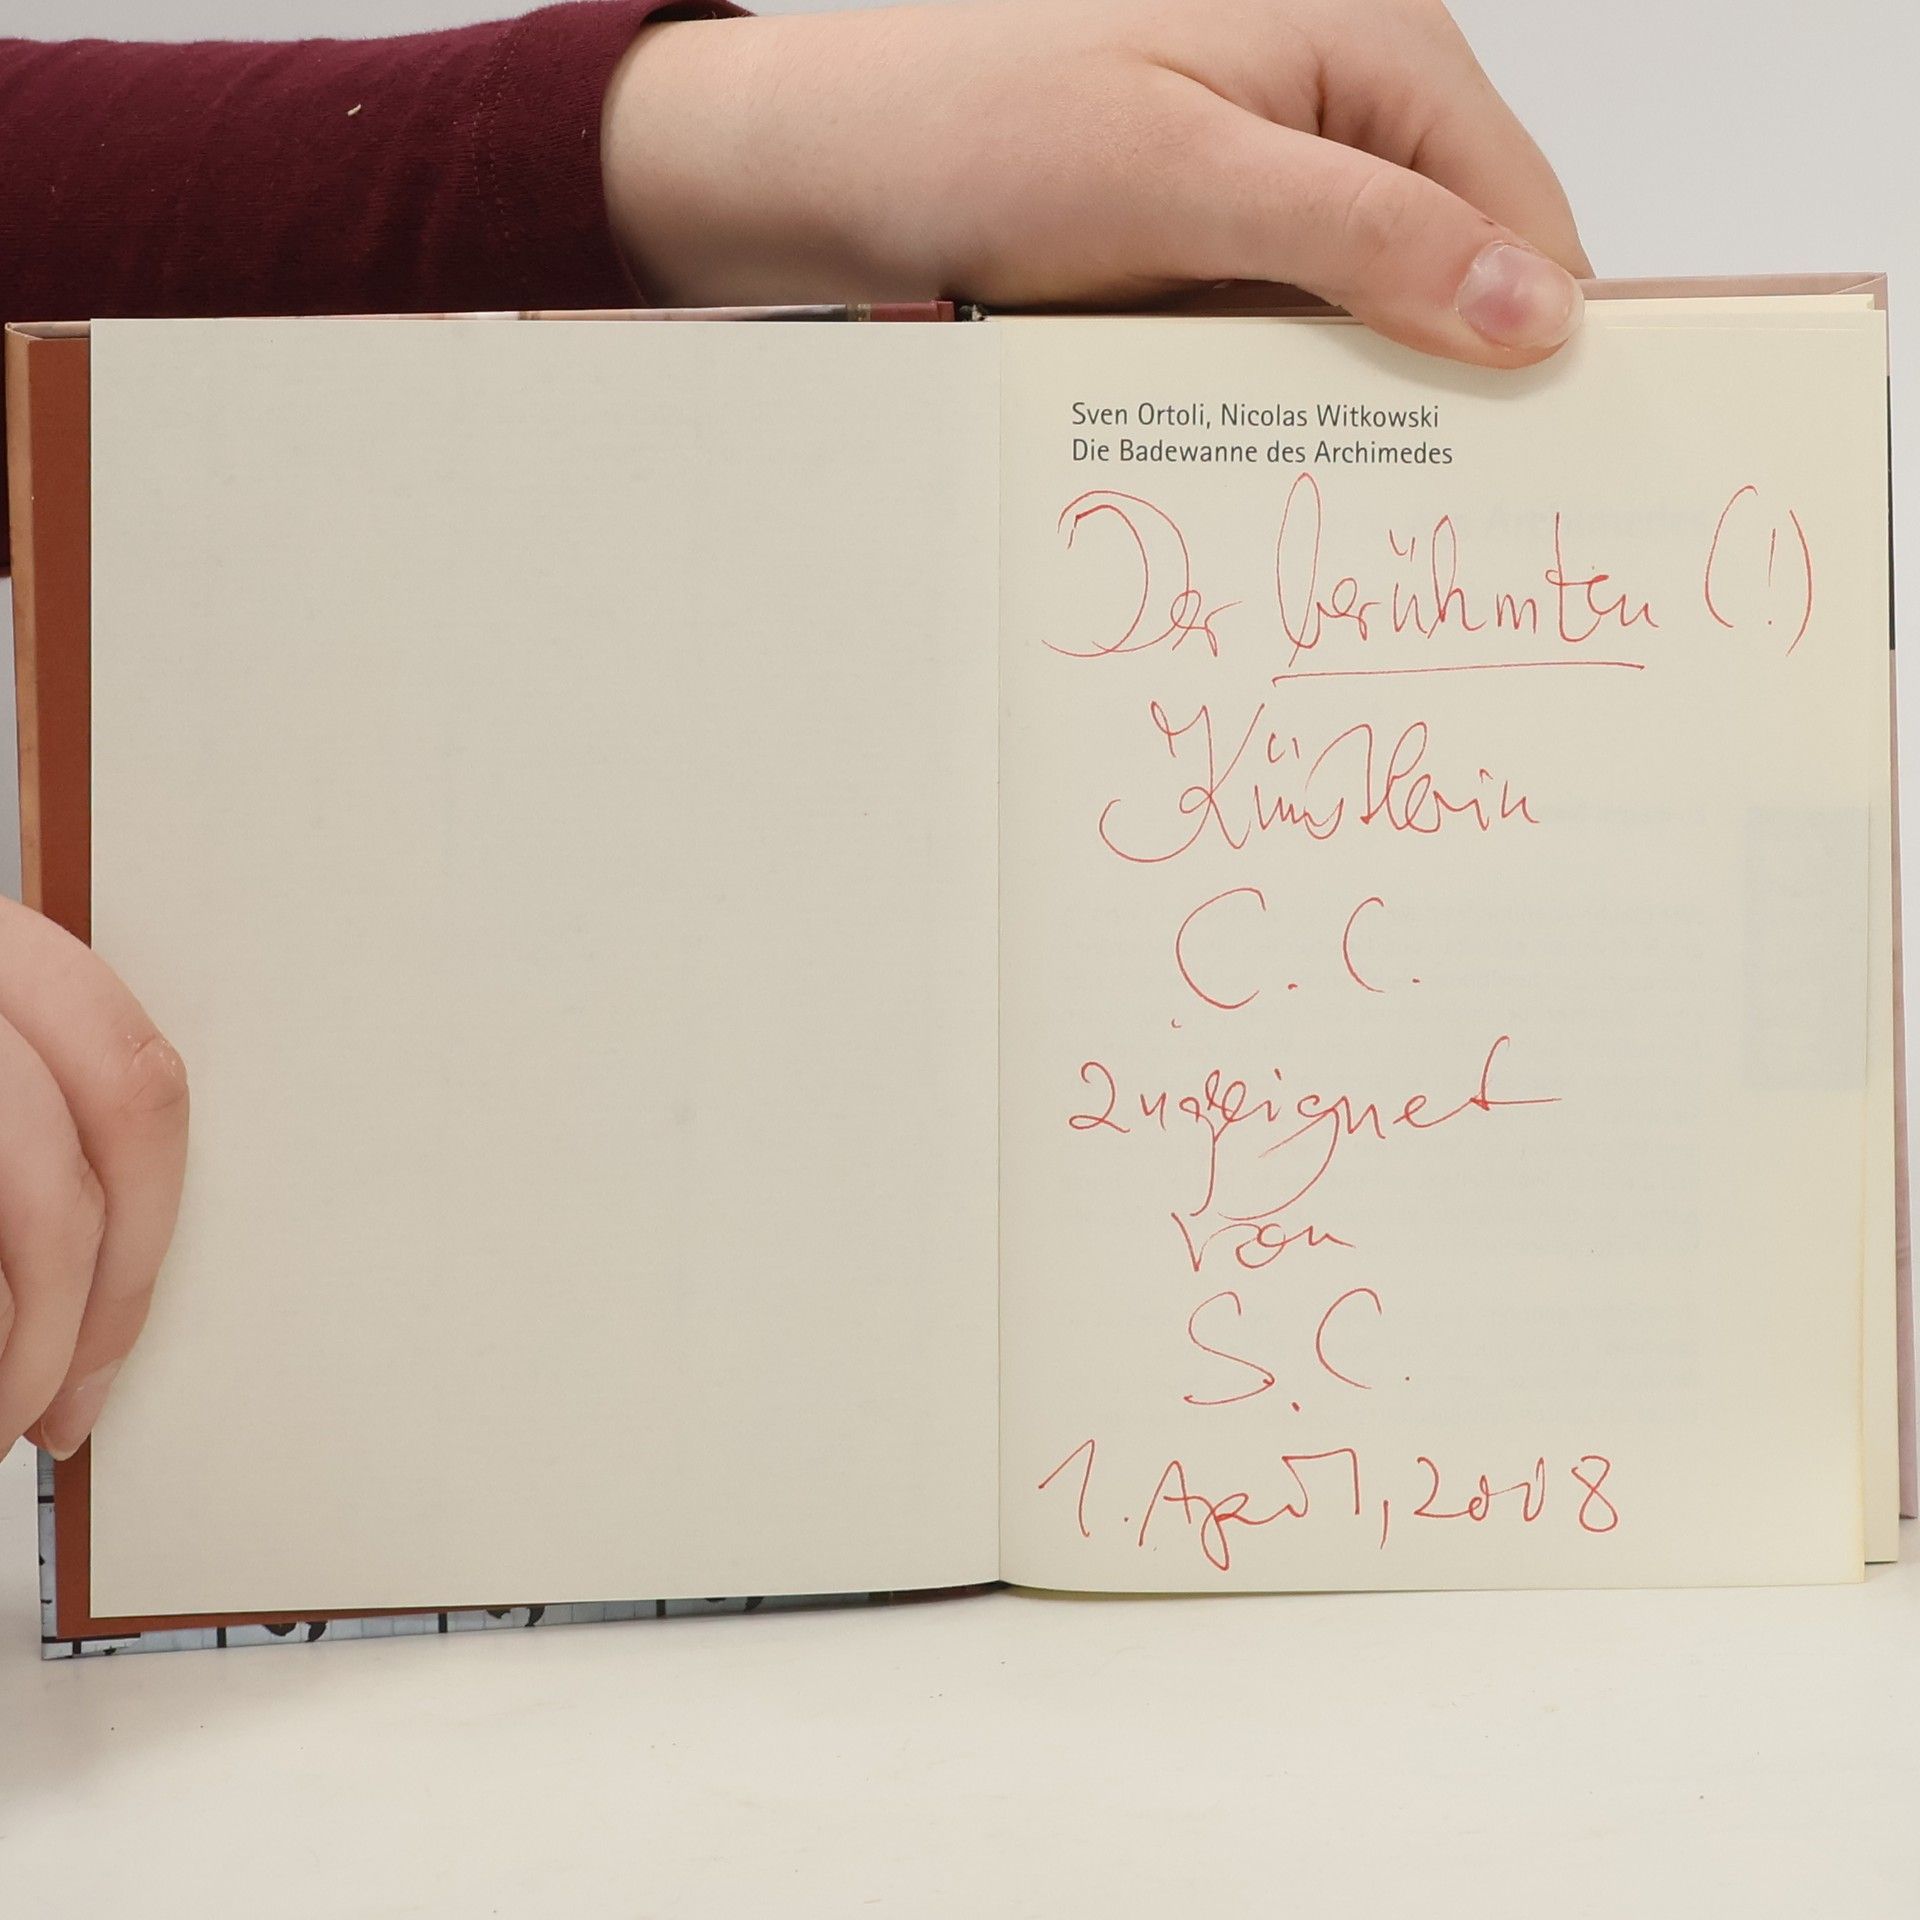 Sven Ortoli, Nicolas Witkowski
Die Badewanne des Archimedes
Der berühmten (!)
Künstlerin
C. C.
zugeeignet
von
S. C.
1. April, 2008